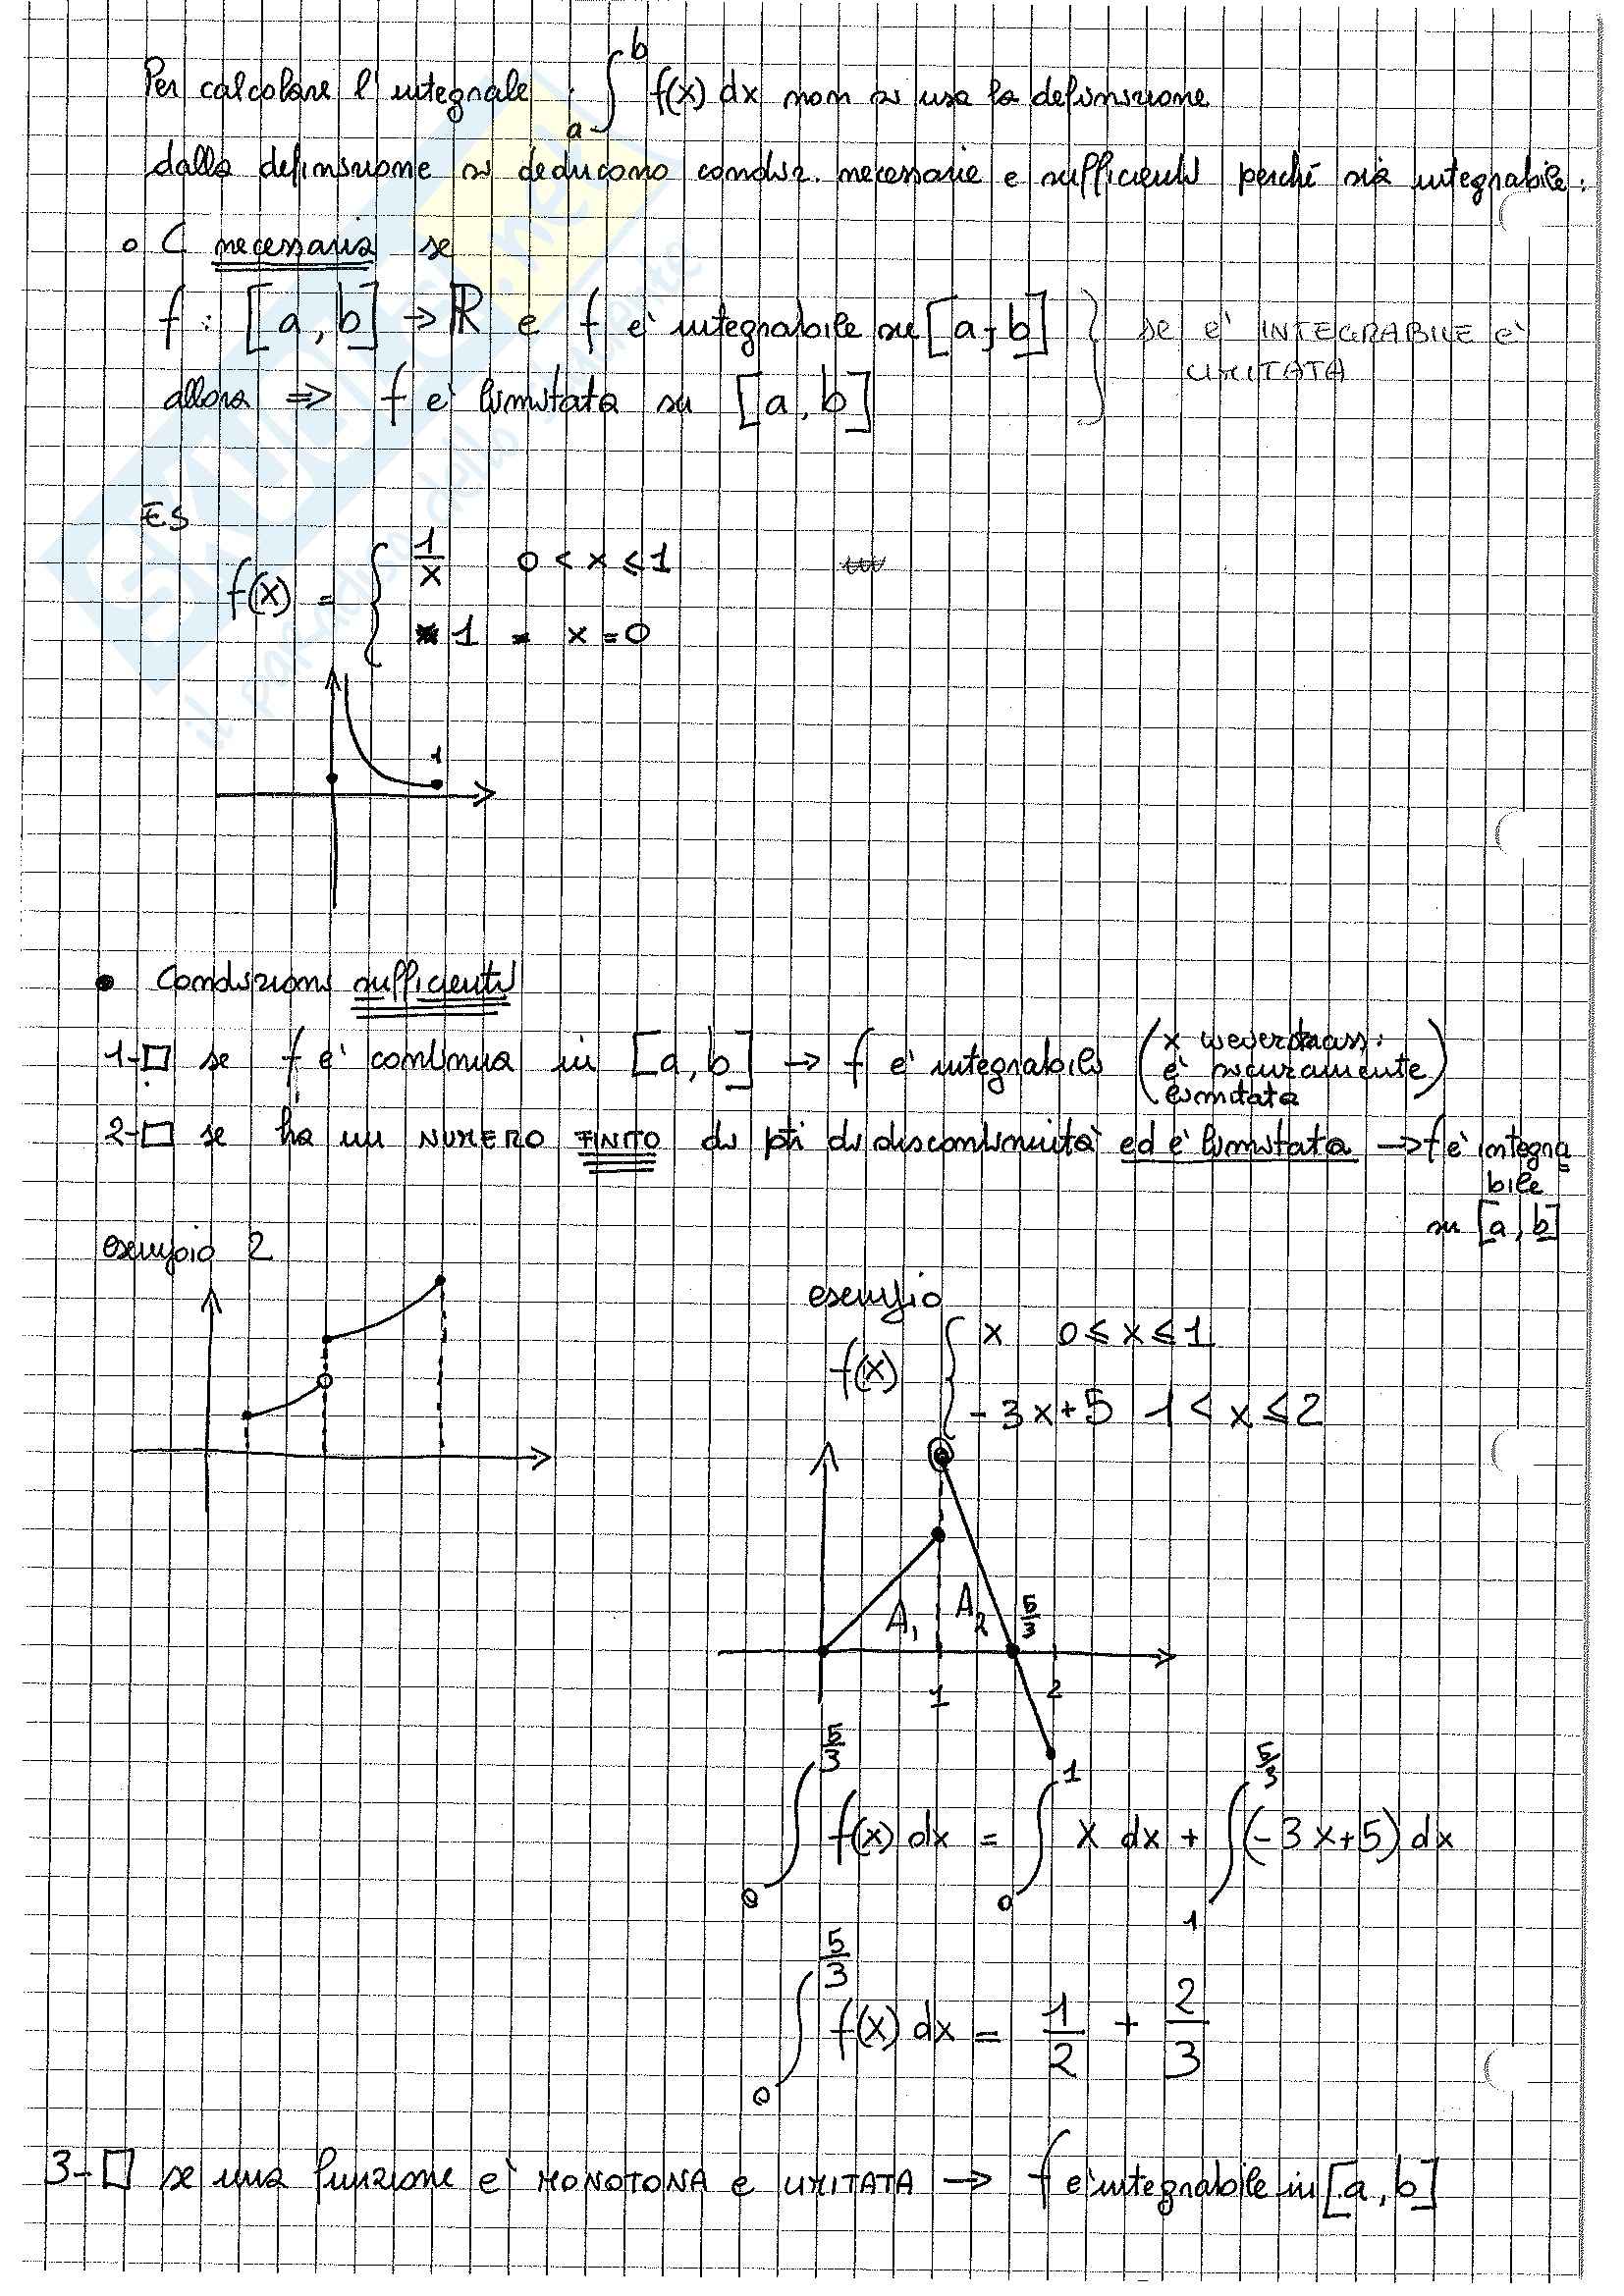 Per calcolare l'integrale : ∫_a^b f(x) dx non si usa la definizione
dalla definizione si deducono condiz. necessarie e sufficienti perché sia integrabile:
o C necessaria se
f : [a, b] → ℝ e f è integrabile su [a, b] } se è INTEGRABILE è
LIMITATA
allora ⇒ f è limitata su [a, b]
ES
f(x) = { 1/x 0 < x ≤ 1
1 = x = 0
1
• Condizioni sufficienti
1-□ se f è continua in [a, b] → f è integrabile (x weierstrass:
è sicuramente
limitata)
2-□ se ha un NUMERO FINITO di pti di discontinuità ed è limitata → f è integra
bile
su [a, b]
esempio 2
esempio
f(x) { x 0 ≤ x ≤ 1
-3x+5 1 < x ≤ 2
A₁ A₂ 5/3
1 2
∫_0^{5/3} f(x) dx = ∫_0^1 x dx + ∫_1^{5/3} (-3x+5) dx
∫_0^{5/3} f(x) dx = 1/2 + 2/3
3-□ se una funzione è MONOTONA e LIMITATA → f è integrabile in [a, b]